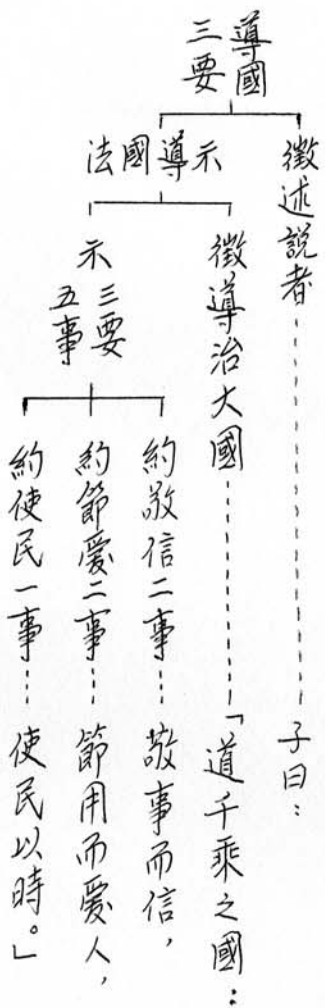 導國
三要
徵述說者……子曰：
示導國法
徵導治大國……「道千乘之國：
示
三要
五事
約敬信二事…敬事而信，
約節愛二事…節用而愛人，
約使民一事…使民以時。」